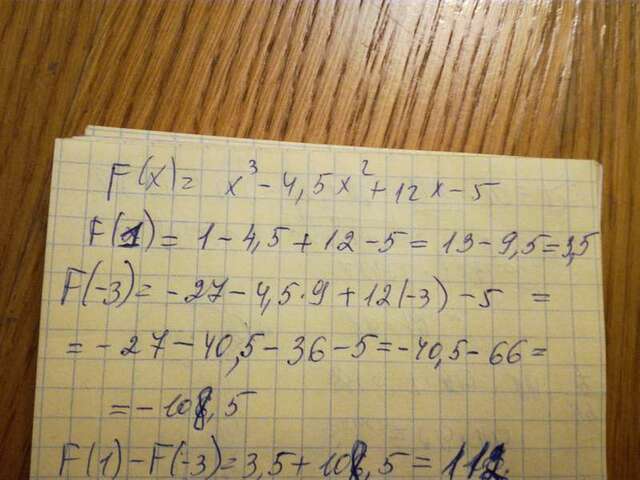 F(x) = x³ - 4,5x² + 12x - 5
F(1) = 1 - 4,5 + 12 - 5 = 13 - 9,5 = 3,5
F(-3) = -27 - 4,5·9 + 12(-3) - 5 =
= -27 - 40,5 - 36 - 5 = -40,5 - 66 =
= -108,5
F(1) - F(-3) = 3,5 + 108,5 = 112.